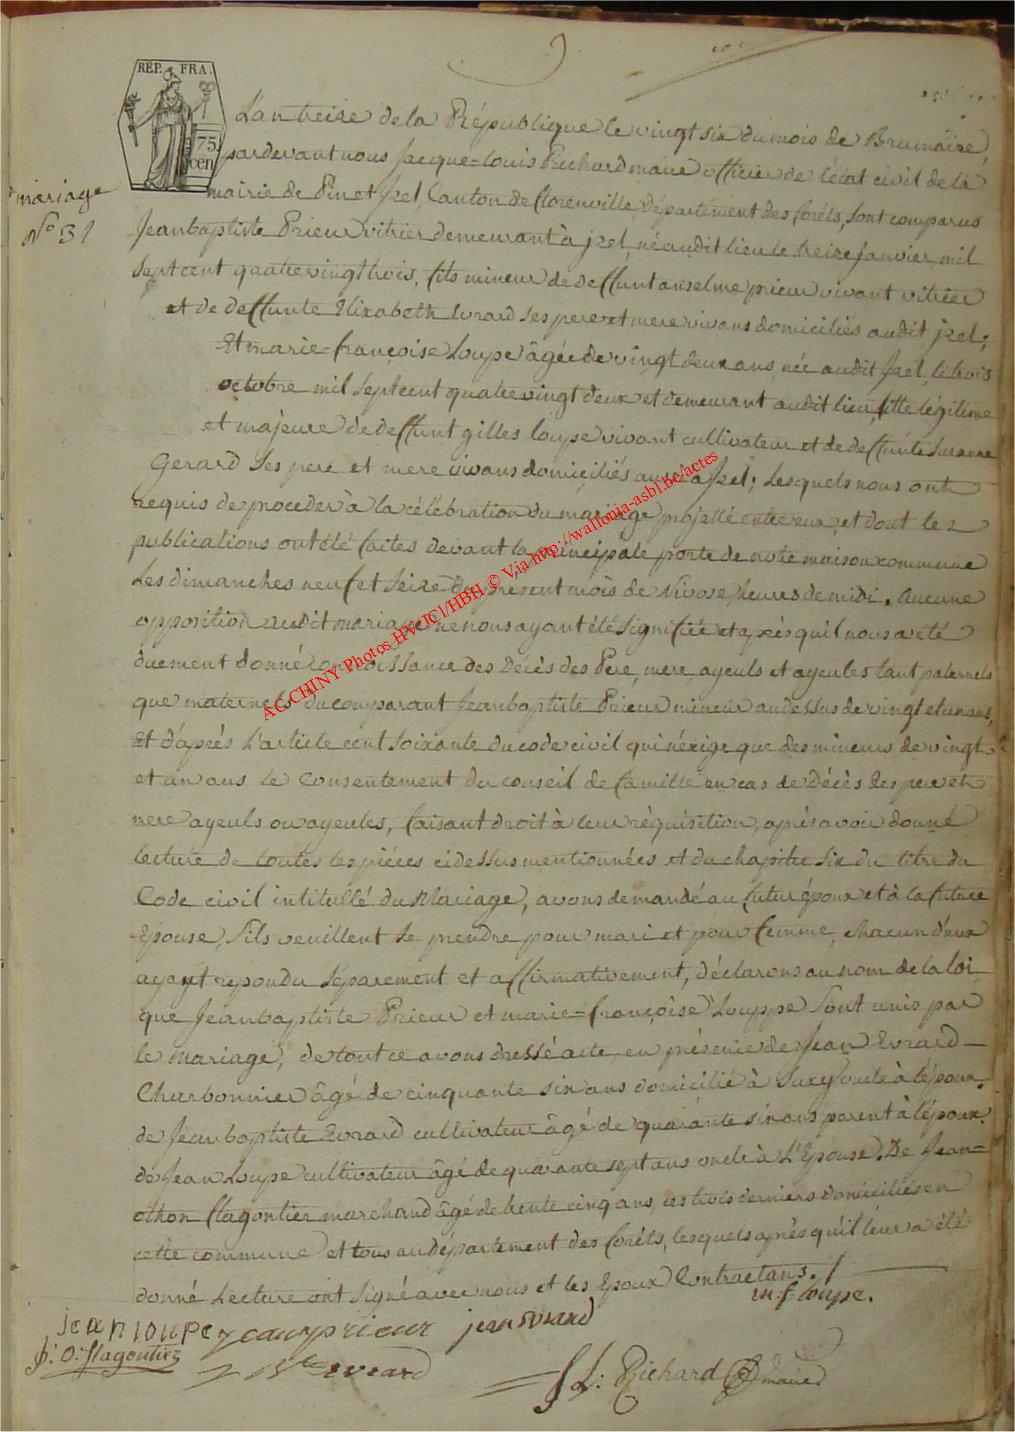 REP. FRA.
75 cen
mariage
N° 31
L'an treize de la République le vingt six du mois de Brumaire,
pardevant nous Jacque=Louis Richard maire officier de l'état civil de la
mairie de Pin et Izel, Canton de florenville, Département des forêts, sont comparus
Jean baptiste Prieur vitrier demeurant à izel, né audit lieu le treize Janvier mil
sept cent quatre vingt trois, fils mineur de deffunt anselme prieur vivant vitrier
et de deffunte Elizabeth Evrard ses pere et mere vivans domiciliés audit izel;
Et marie=françoise Loupe âgée de vingt deux ans, née audit Izel, le trois
octobre mil sept cent quatre vingt deux et demeurant audit lieu, fille légitime
et majeure de deffunt gilles loupe vivant cultivateur et de deffunte Suzanne
Gerard ses pere et mere vivans domiciliés aussi à Izel; Lesquels nous ont
requis de proceder à la célébration du mariage projetté entre eux, et dont les
publications ont été faites devant la principale porte de notre maison commune
Les dimanches neuf et seize du present mois de Nivose, heures de midi. Aucune
opposition audit mariage ne nous ayant été signifiée et après qu'il nous a été
duement donné connoissance des Décès des Pere, mere, ayeuls et ayeules tant paternels
que maternels du comparant Jean baptiste Prieur mineur au dessus de vingt et un ans,
Et d'après L'article cent soixante du code civil qui n'exige que des mineurs de vingt
et un ans le consentement du conseil de famille en cas de Décès des pere et
mere ayeuls ou ayeules, faisant droit à leur réquisition, après avoir donné
lecture de toutes les piéces ci dessus mentionnées et du chapitre six du titre du
Code civil intitullé du Mariage, avons demandé au futur époux et à la future
Epouse, s'ils veuillent se prendre pour mari et pour femme, chacun d'eux
ayant repondu séparement et affirmativement, déclarons au nom de la loi
que Jean baptiste Prieur et marie=françoise Louppe sont unis par
le mariage, de tout ce avons dressé acte en présence de Jean Evrard
Charbonnier âgé de cinquante six ans domicilié à Suxy oncle à l'époux.
de Jean baptiste Evrard cultivateur âgé de quarante six ans parent à l'époux.
de Jean Loupe cultivateur âgé de quarante sept ans oncle à L'Epouse. De Jean=
othon flagontier marchand âgé de trente cinq ans, ces trois derniers domiciliés en
cette commune et tous au département des forêts, lesquels après qu'il leur a été
donné Lecture ont signé avec nous et les Epoux Contractans.
m f loupe.
jean loupe jean prieur jean evrard
J: O: flagontier
J Bte evrard
J L: Richard maire
AG CHINY Photos HVICI/HBH © Via http://wallonia-asbl.be/actes